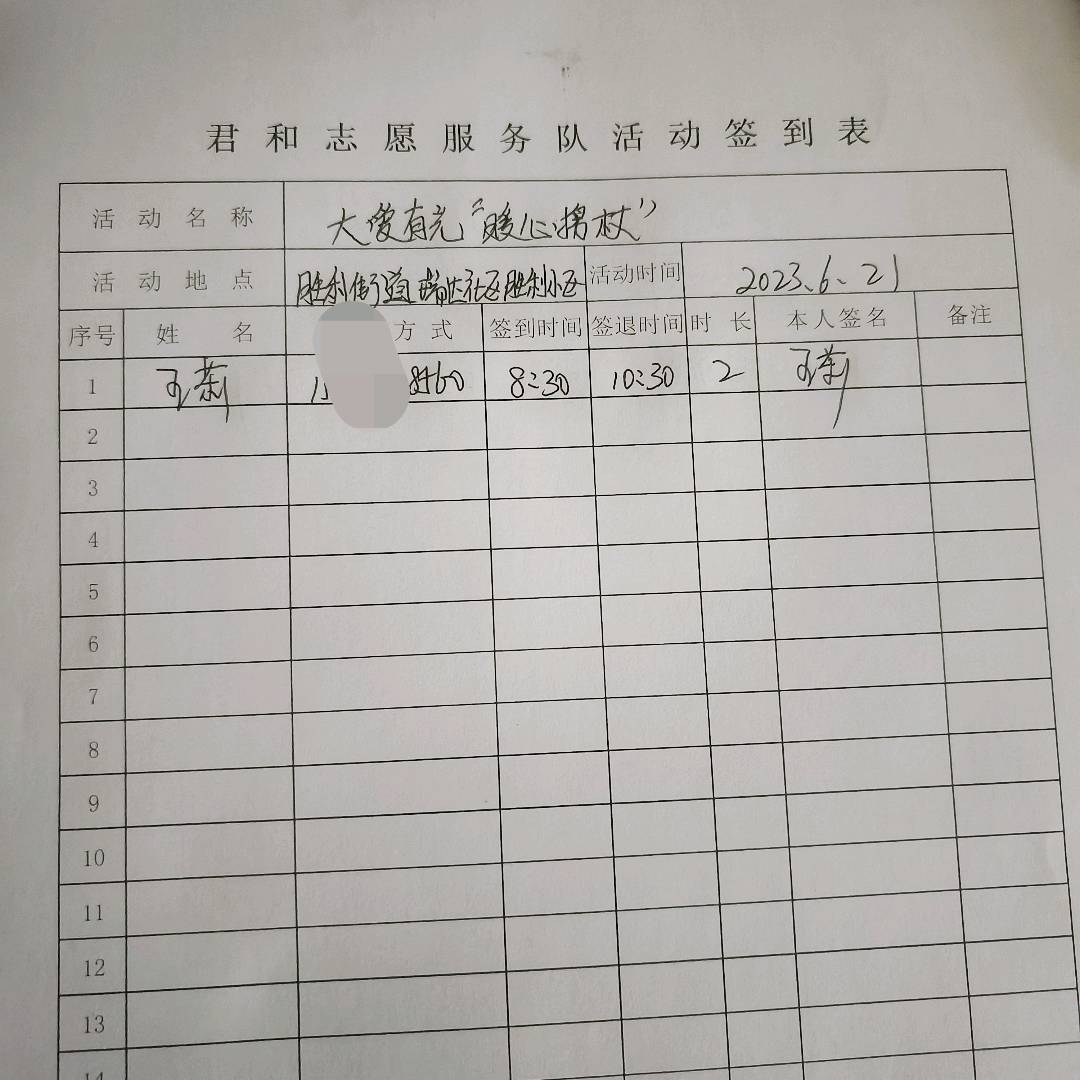 君和志愿服务队活动签到表
活动名称 大爱有光“暖心拐杖”
活动地点 胜利街道 社区胜利小区 活动时间 2023.6.21
序号 姓名 方式 签到时间 签退时间 时长 本人签名 备注
1 8:30 10:30 2
2
3
4
5
6
7
8
9
10
11
12
13
14